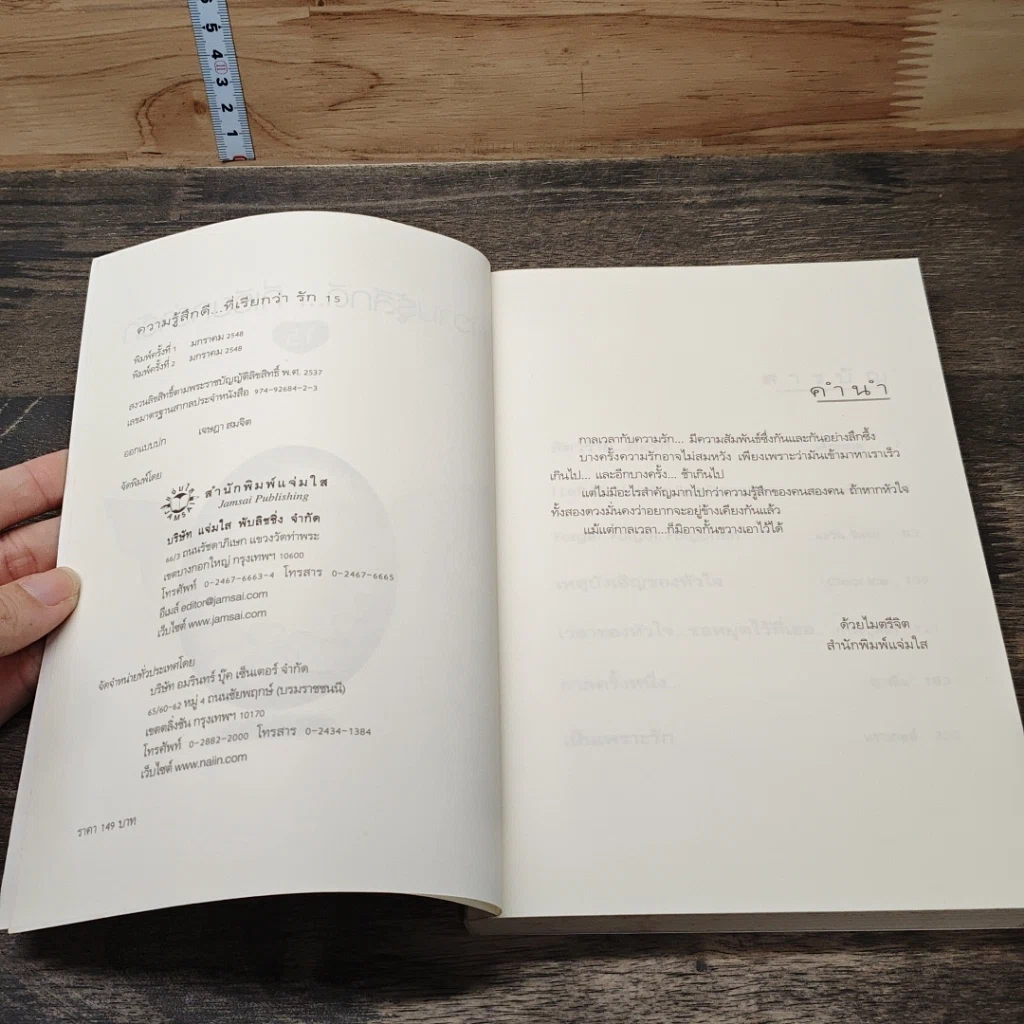 5
4
3
2
1
ความรู้สึกดี...ที่เรียกว่า รัก 15
พิมพ์ครั้งที่ 1 มกราคม 2548
พิมพ์ครั้งที่ 2 มกราคม 2548
สงวนลิขสิทธิ์ตามพระราชบัญญัติลิขสิทธิ์ พ.ศ. 2537
เลขมาตรฐานสากลประจำหนังสือ 974-92684-2-3
ออกแบบปก เจษฎา สมจิต
จัดพิมพ์โดย
สำนักพิมพ์แจ่มใส
Jamsai Publishing
บริษัท แจ่มใส พับลิชชิ่ง จำกัด
66/3 ถนนรัชดาภิเษก แขวงวัดท่าพระ
เขตบางกอกใหญ่ กรุงเทพฯ 10600
โทรศัพท์ 0-2467-6663-4 โทรสาร 0-2467-6665
อีเมล์ editor@jamsai.com
เว็บไซต์ www.jamsai.com
จัดจำหน่ายทั่วประเทศโดย
บริษัท อมรินทร์ บุ๊ค เซ็นเตอร์ จำกัด
65/60-62 หมู่ 4 ถนนชัยพฤกษ์ (บรมราชชนนี)
เขตตลิ่งชัน กรุงเทพฯ 10170
โทรศัพท์ 0-2882-2000 โทรสาร 0-2434-1384
เว็บไซต์ www.naiin.com
ราคา 149 บาท
คำนำ
กาลเวลากับความรัก... มีความสัมพันธ์ซึ่งกันและกันอย่างลึกซึ้ง
บางครั้งความรักอาจไม่สมหวัง เพียงเพราะว่ามันเข้ามาหาเราเร็ว
เกินไป... และอีกบางครั้ง... ช้าเกินไป
แต่ไม่มีอะไรสำคัญมากไปกว่าความรู้สึกของคนสองคน ถ้าหากหัวใจ
ทั้งสองดวงมั่นคงว่าอยากจะอยู่ข้างเคียงกันแล้ว
แม้แต่กาลเวลา...ก็มิอาจกั้นขวางเอาไว้ได้
ด้วยไมตรีจิต
สำนักพิมพ์แจ่มใส